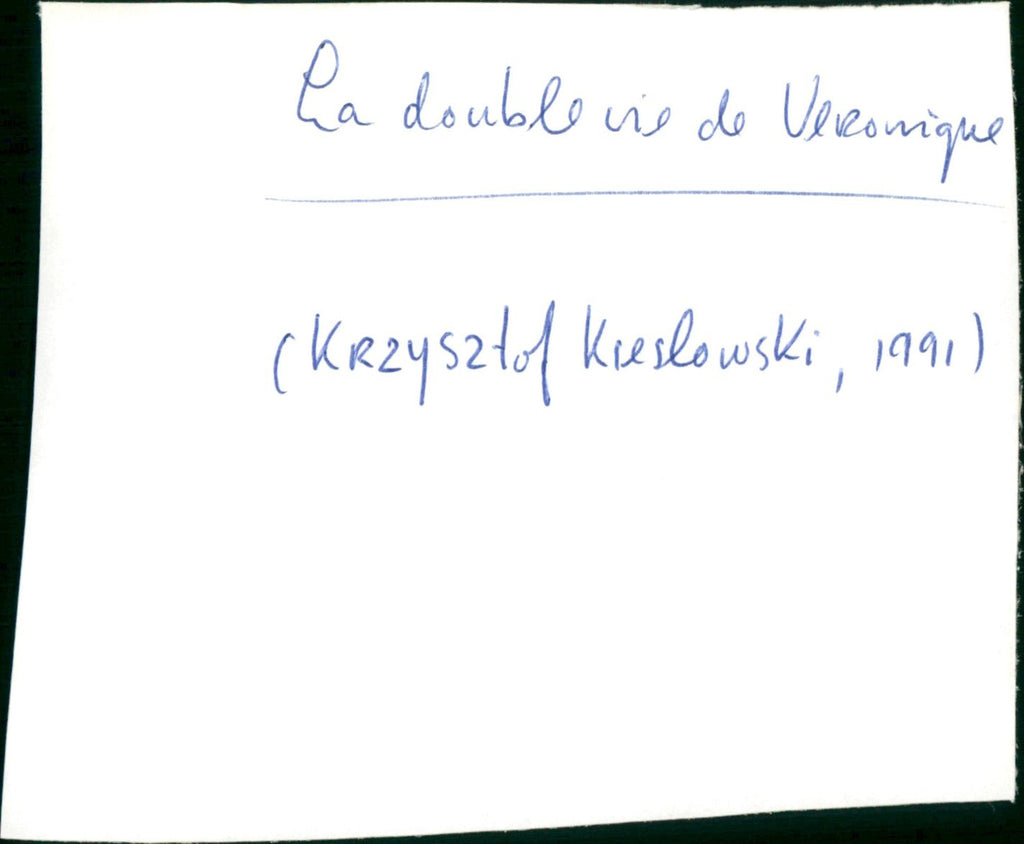 La double vie de Veronique
(Krzysztof Kieslowski, 1991)